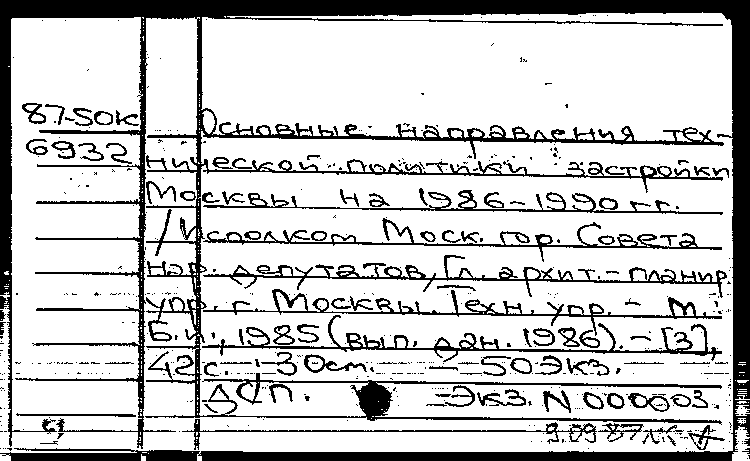 87-50к Основные направления тех-
6932 нической политики застройки
Москвы на 1986-1990 гг.
/Исполком Моск. гор. Совета
нар. депутатов, Гл. архит.- планир.
упр. г. Москвы. Техн. упр. - М.:
Б.и., 1985 (вып. дан. 1986). - [3],
42 с. ; 30 см. — 50 экз.
ДСП. - Экз. N 000003.
9.09.87